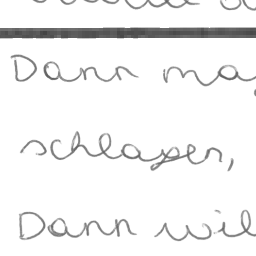 Dann mag
schlagen,
Dann wil